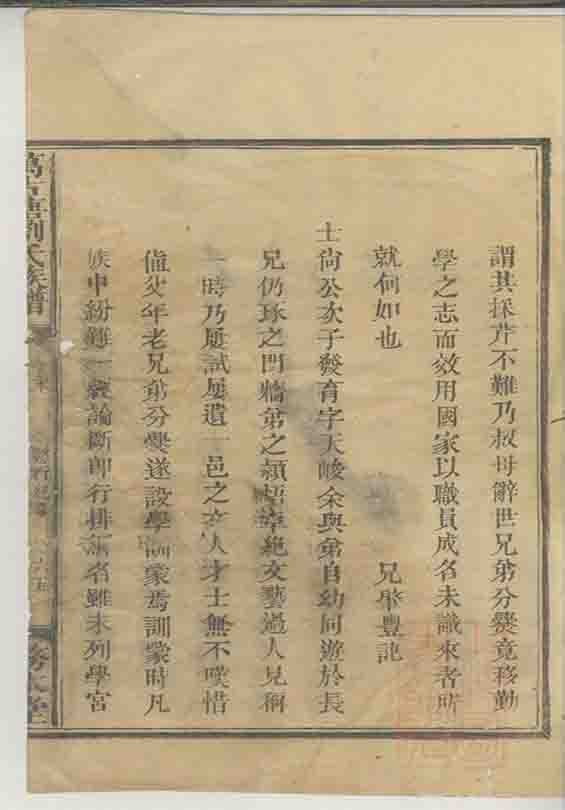 謂其採芹不難乃叔母辭世兄弟分爨竟移勤
學之志而效用國家以職員成名未識來者所
就何如也
兄肇豐記
士尙公次子發育字天峻余與弟自幼同遊於長
兄仍琢之門牆弟之穎悟卓絶文藝過人見稱
一時乃屢試屢遺一邑之文人才士無不嘆惜
值父年老兄弟分爨遂設學訓蒙焉訓蒙時凡
族中紛難一經論斷卽行排解名雖未列學宮
劉氏族譜